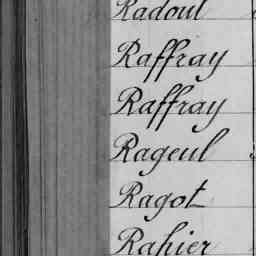 Radoul
Raffray
Raffray
Rageul
Ragot
Rahier